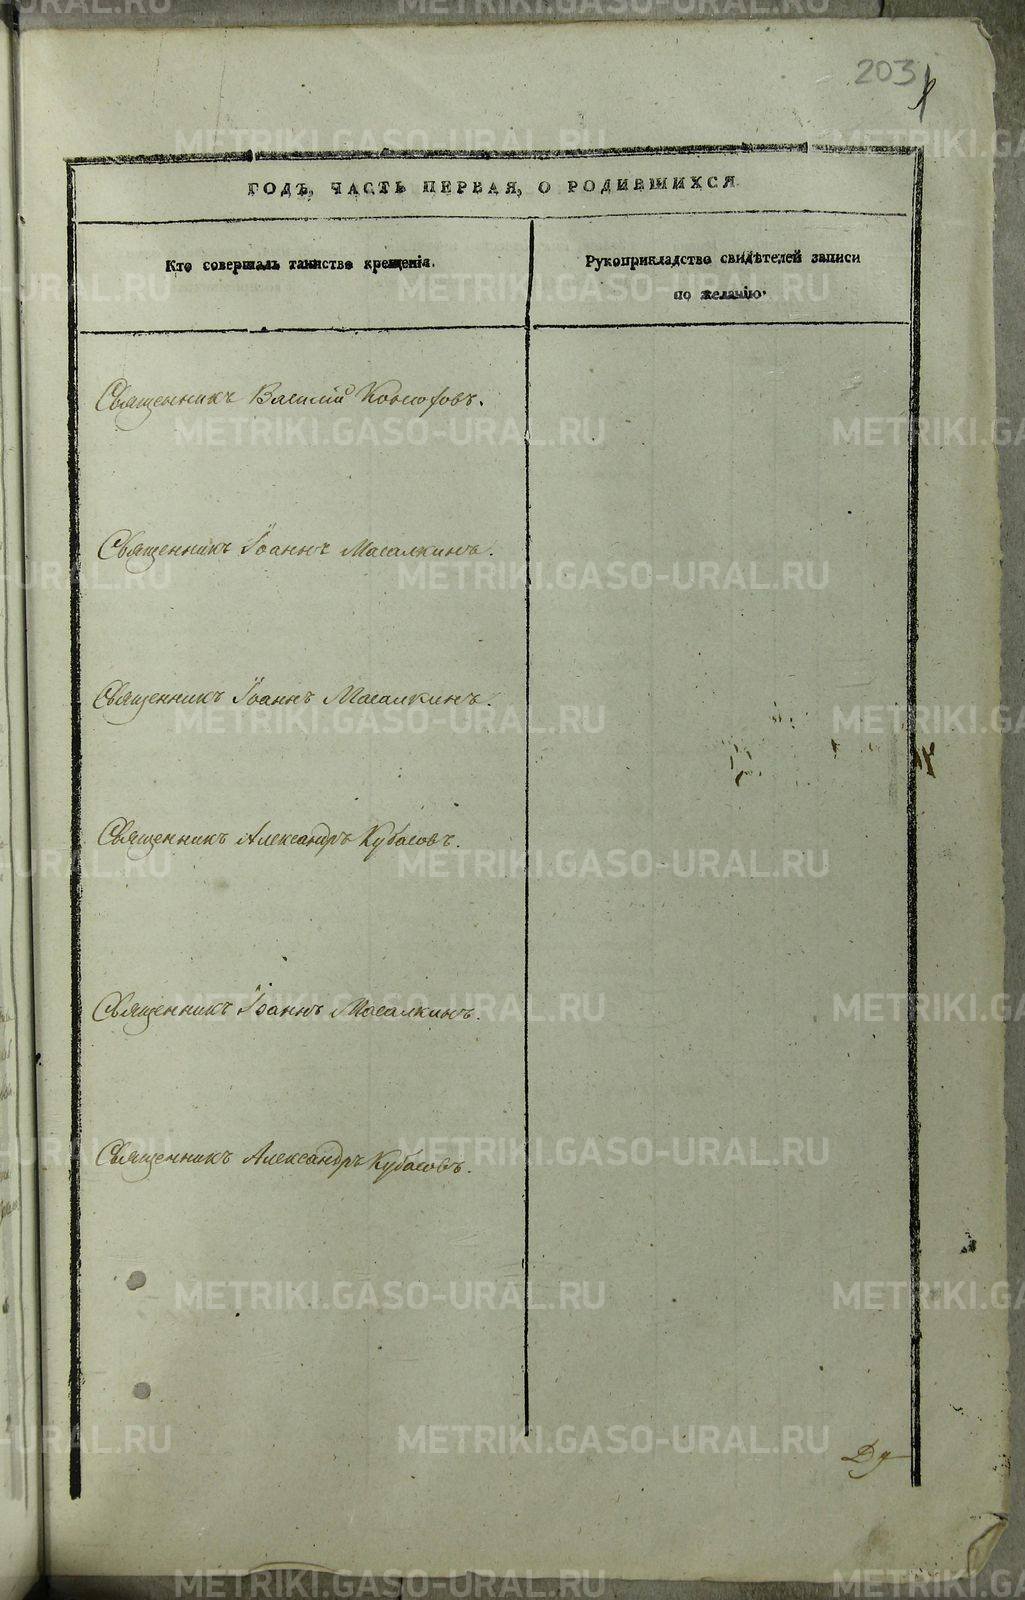 203
ГОДЪ, ЧАСТЬ ПЕРВАЯ, О РОДИВШИХСЯ
Кто совершалъ таинство крещенія.
Рукоприкладство свидѣтелей записи
по желанію.
Священникъ Василій
Священникъ Іоаннъ Масалкинъ.
Священникъ Іоаннъ Масалкинъ.
Священникъ Александръ Кубасовъ.
Священникъ Іоаннъ Масалкинъ.
Священникъ Александръ Кубасовъ.
Ду
METRIKI.GASO-URAL.RU